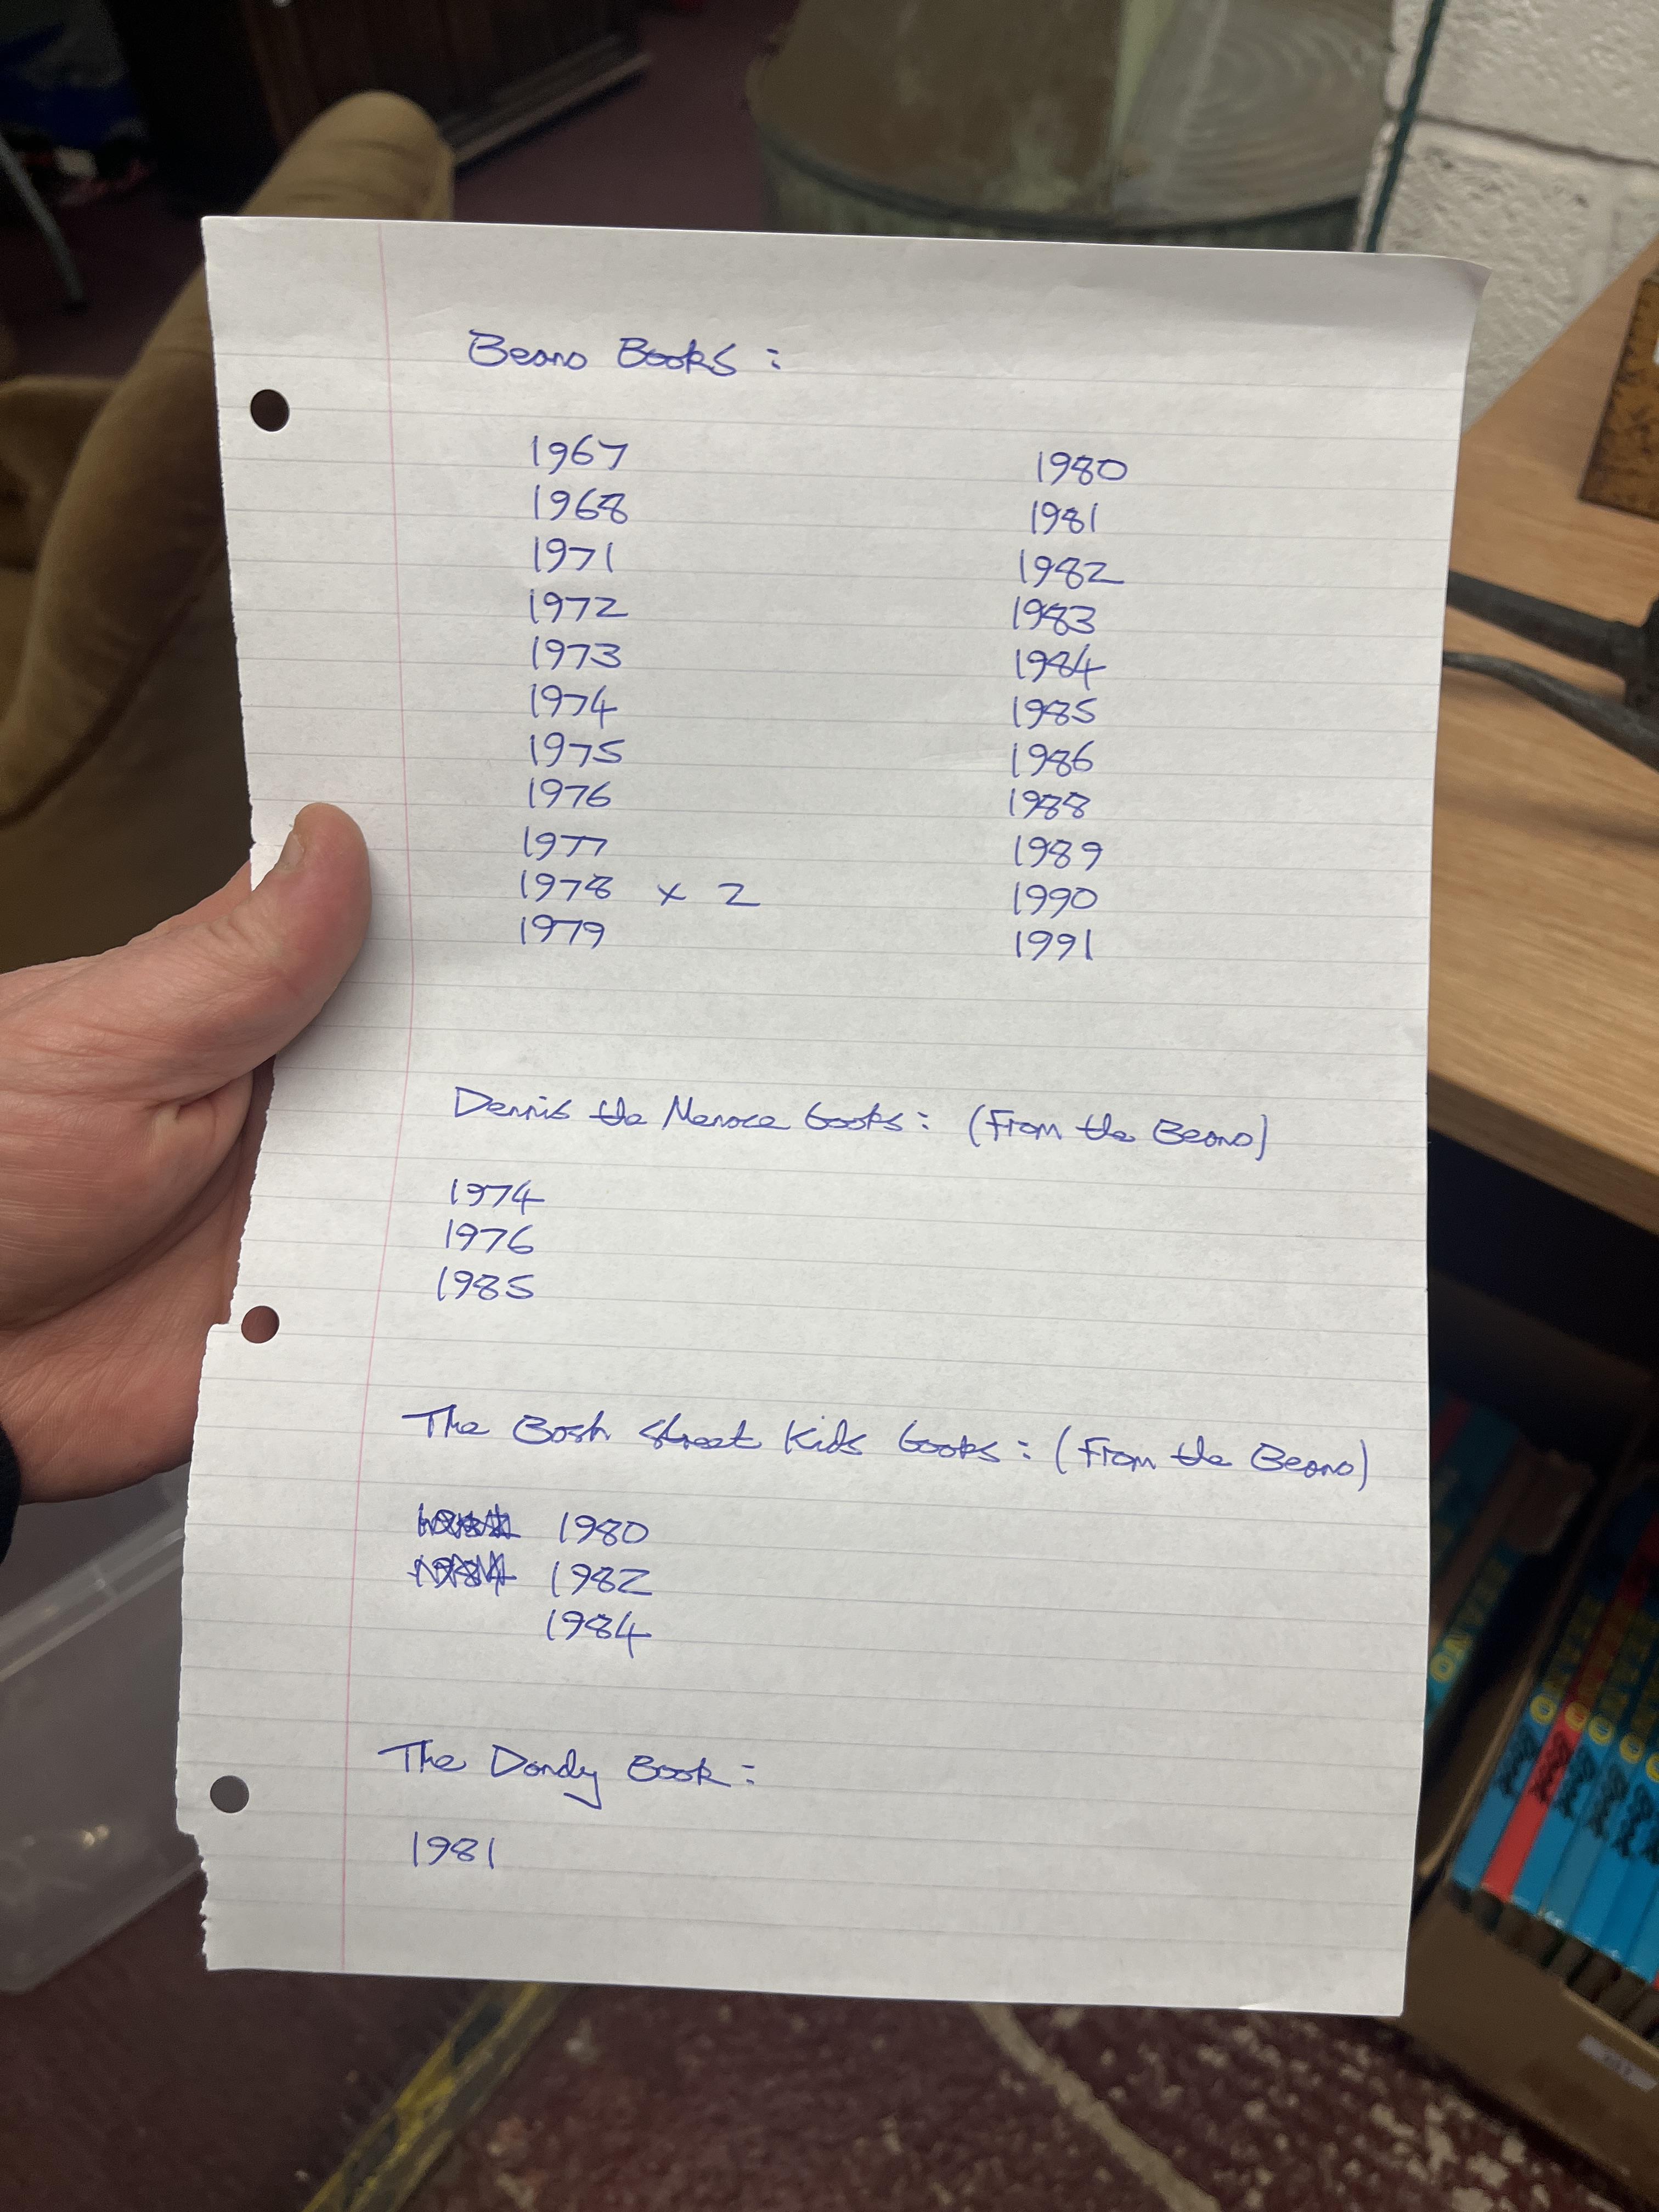 Beano Books :
1967
1968
1971
1972
1973
1974
1975
1976
1977
1978 x 2
1979
1980
1981
1982
1983
1984
1985
1986
1988
1989
1990
1991
Dennis the Menace books : (From the Beano)
1974
1976
1985
The Bash Street Kids books : (From the Beano)
1980
1982
1984
The Dandy Book :
1981
BEANO